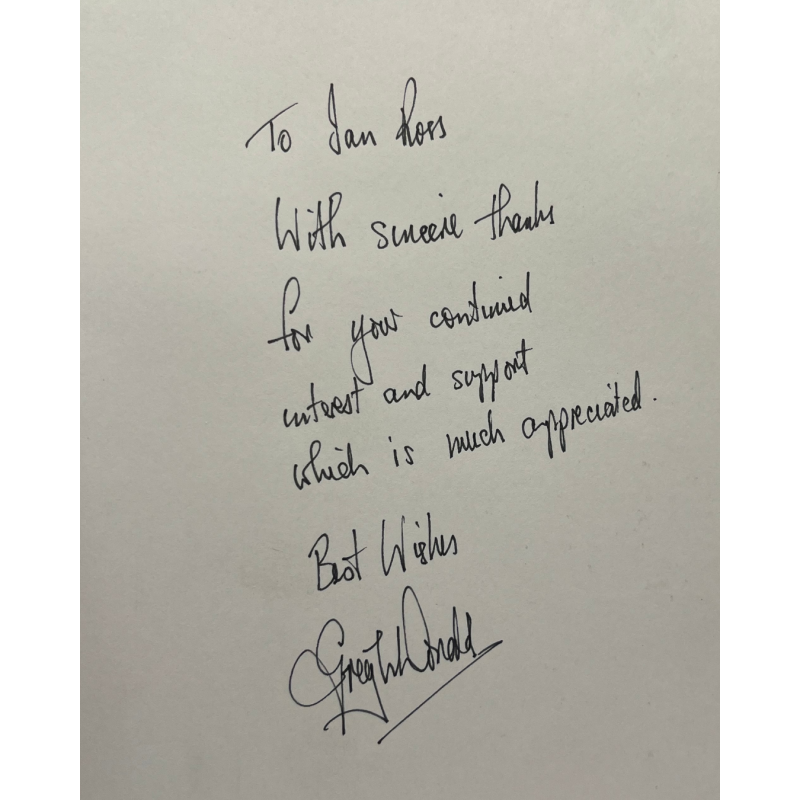 To Ian Ross
With sincere thanks
for your continued
interest and support
which is much appreciated.
Best Wishes